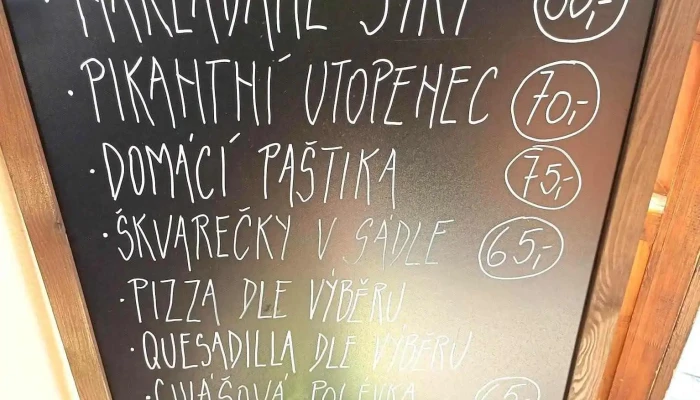 · NAKLÁDANÉ SÝRY 60,-
· PIKANTNÍ UTOPENEC 70,-
· DOMÁCÍ PAŠTIKA 75,-
· ŠKVAREČKY V SÁDLE 65,-
· PIZZA DLE VÝBĚRU
· QUESADILLA DLE VÝBĚRU
POLÉVKA